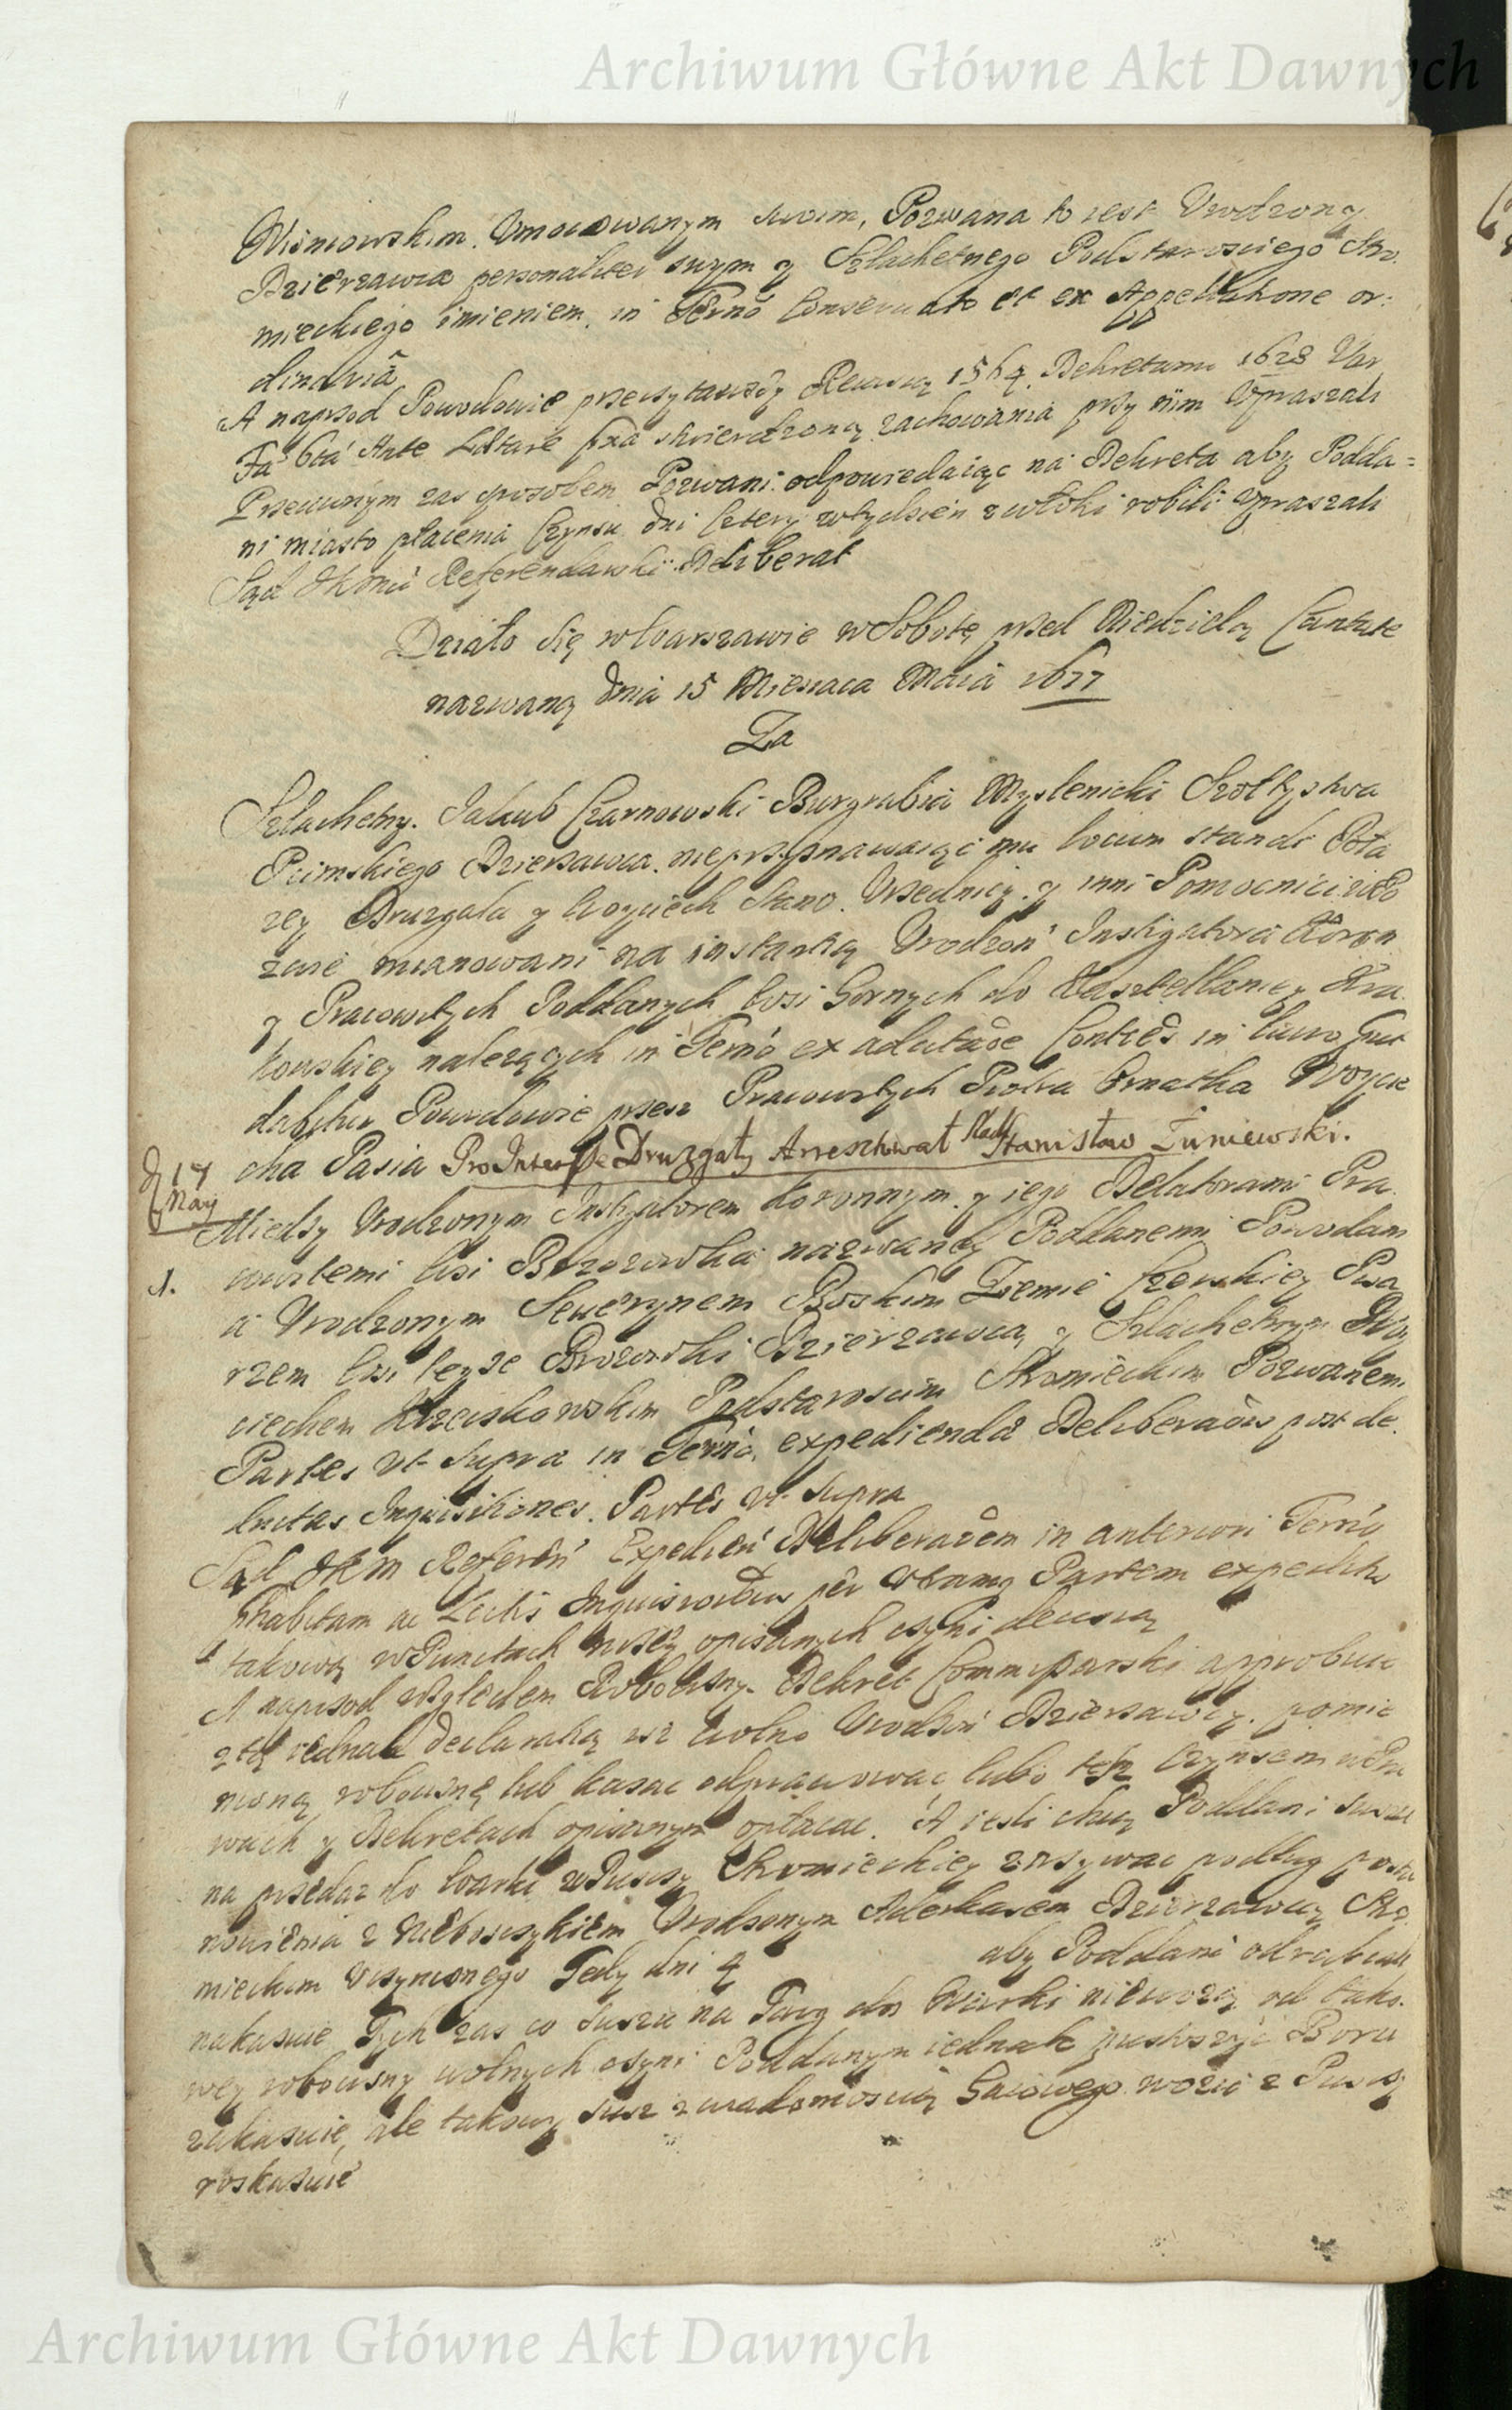 Archiwum Główne Akt Dawnych
Wisniowskim. Umocowanym swoim, Pozwana to iest Urodzony
Dzierzawca personaliter swym y Szlachetnego Podstarosciego Stro.
mieckiego imieniem, in Termo Conservato et ex Appellatione or:
dinariâ
A naprzod Powodowie przeczytawszy Rewizią 1564. Dekretami 1628 Var
stwierdzoną zachowania przy niim Upraszali
Przeciwnym zas sposobem Pozwani odpowiedaiąc na Dekreta aby Podda=
ni miasto płacenia Czynsu dni Cztery wtydzien zwłoki robili Upraszali
Sąd JKMci Referendarski Deliberat
Dziáło się w Warszawie w Sobotę przed Niedzielą Cantate
nazwaną Dnia 15 Miesiąca Maia 1677
Za
Szlachetny. Jakub Czarnowski Burgrabia Myslenicki Szołtystwa
Pcimskiego Dzierzawca. nieprzyznawaiąc mu locum standi
Druzgała y Woyciech Urzednicy y inni Pomocnici
mianowani na instantią Urodzon Instigatora Koron
y Pracowitych Poddanych Wsi Gornych do Kasztellaniey Kra
kowskiey nalezących in Termo ex in
Powodowie przez Pracowitych Piotra Woycie
cha Pasia Pro Druzgały Arresztował Stanisław Zuniewski.
D 17
May
Między Urodzonym Instigatorem Koronnym. y iego Delatorami Pra
1. cowitemi Wsi Brozowka nazwaney Poddanemi Powodam
a Urodzonym Sewerynem Ziemie Czerskiey Pisa
rzem Wsi teyze Brozowki Dzierzawcą y Szlachetnym Woy
ciechem Podstaroscim Stromieckim Pozwanemi
Partes ut supra in Termo, expediendâ post de.
Inquisitiones. Partes ut supra
Sąd JKM Referen Expedien in anteriori Termo
habitam ac Lectis per utramq Partem expeditis
takową w Punctach nizey opisanych czyni decisią
A naprzod względem Robocizny Dekret Commissarski approbuie
z tą iednak declaratią isz wolno Urodzon Dzierzawcy. pomie
nioną robociznę lub kazac odprawowac lubo tesz czynsem w Pra
wach y Dekretach opisanym opłacac. A iesli chcą Poddani
na przedaz do Warki z Puszczy Stromieckiey zazywac podług posta
nowienia z Nieboszczykiem Urodzonym Dzierzawcą Stro
mieckim Uczynionego Tedy dni 4 aby Poddani odrabiali
nakazuie Tych zas co suszu na Targ do Warki niewozą od tako.
wey robocizny wolnych czyni Poddanym iednak pustoszyc Boru
zakazuie, ale takowy susz z wiadomoscią Gaiowego wozic z Puszczy
roskazuie
Archiwum Główne Akt Dawnych